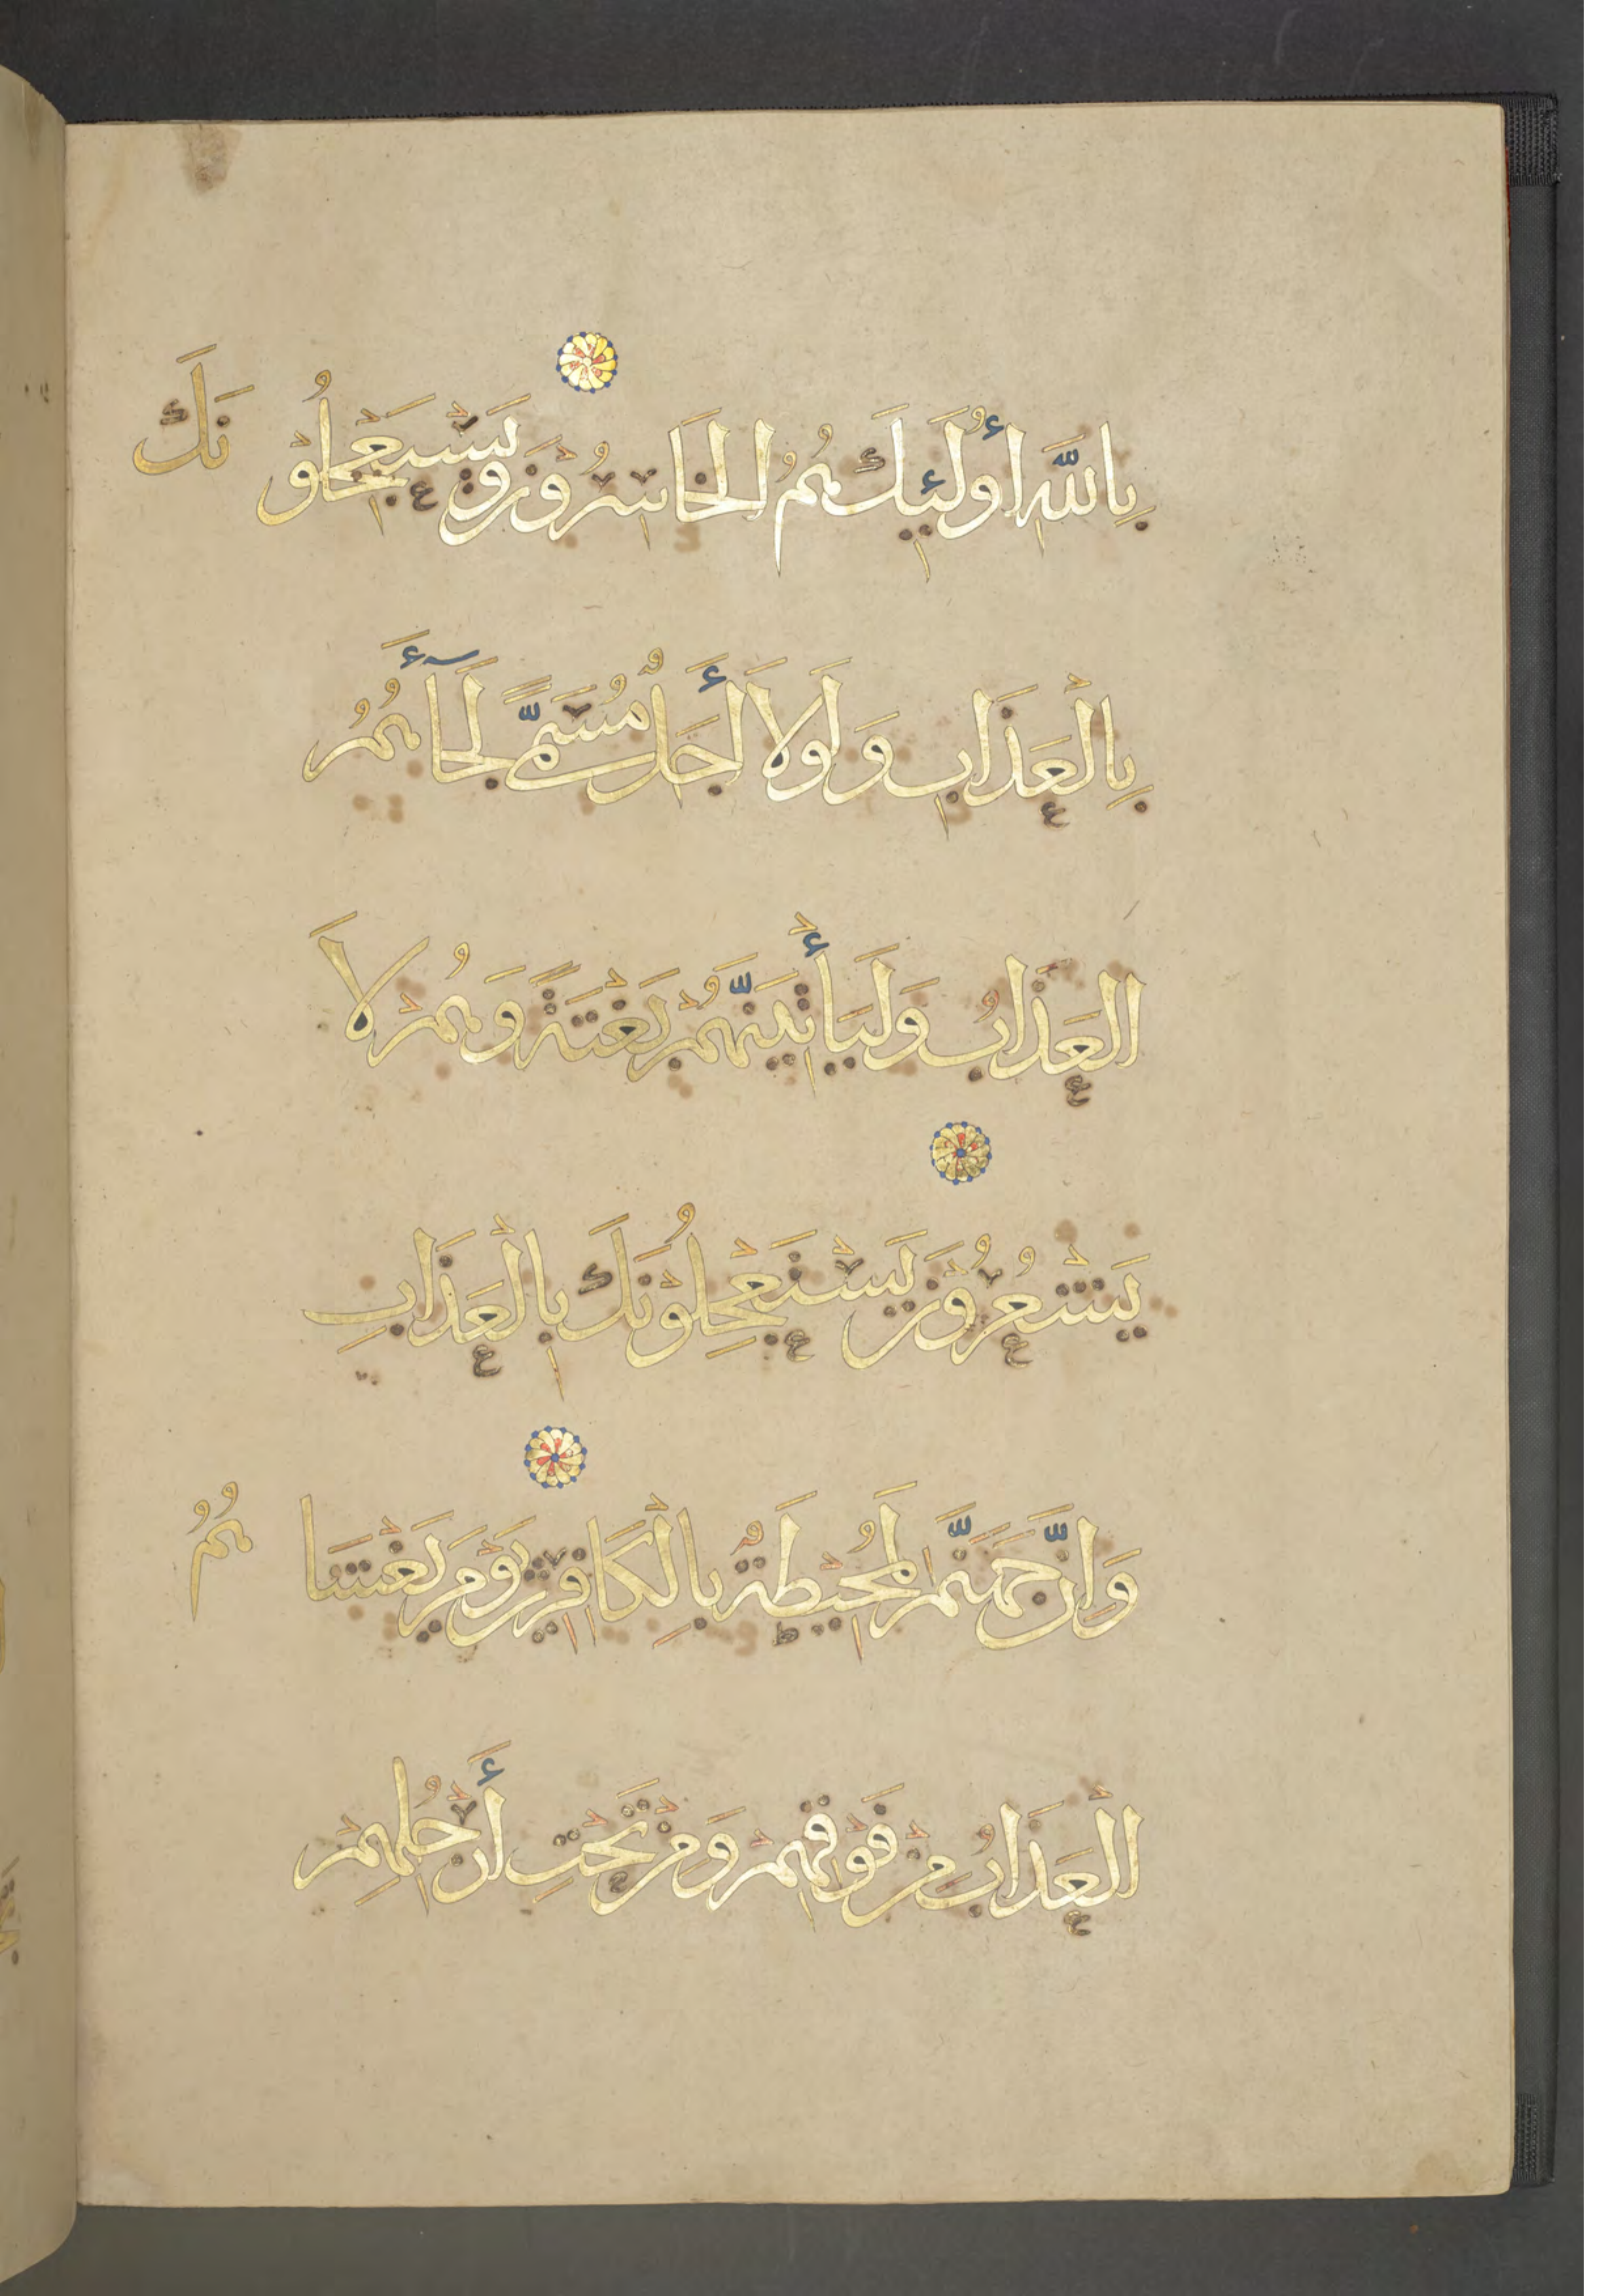 بِاللَّهِ أُولَئِكَ هُمُ الْخَاسِرُوْنَ وَيَسْتَعْجِلُوْنَكَ
بِالْعَذَابِ وَلَوْلَا أَجَلٌ مُسَمًّى لَجَآءَهُمُ
الْعَذَابُ وَلَيَأْتِيَنَّهُمْ بَغْتَةً وَهُمْ لَا
يَشْعُرُوْنَ يَسْتَعْجِلُوْنَكَ بِالْعَذَابِ
وَإِنَّ جَهَنَّمَ لَمُحِيْطَةٌ بِالْكَافِرِيْنَ يَوْمَ يَغْشَاهُمُ
الْعَذَابُ مِنْ فَوْقِهِمْ وَمِنْ تَحْتِ أَرْجُلِهِمْ